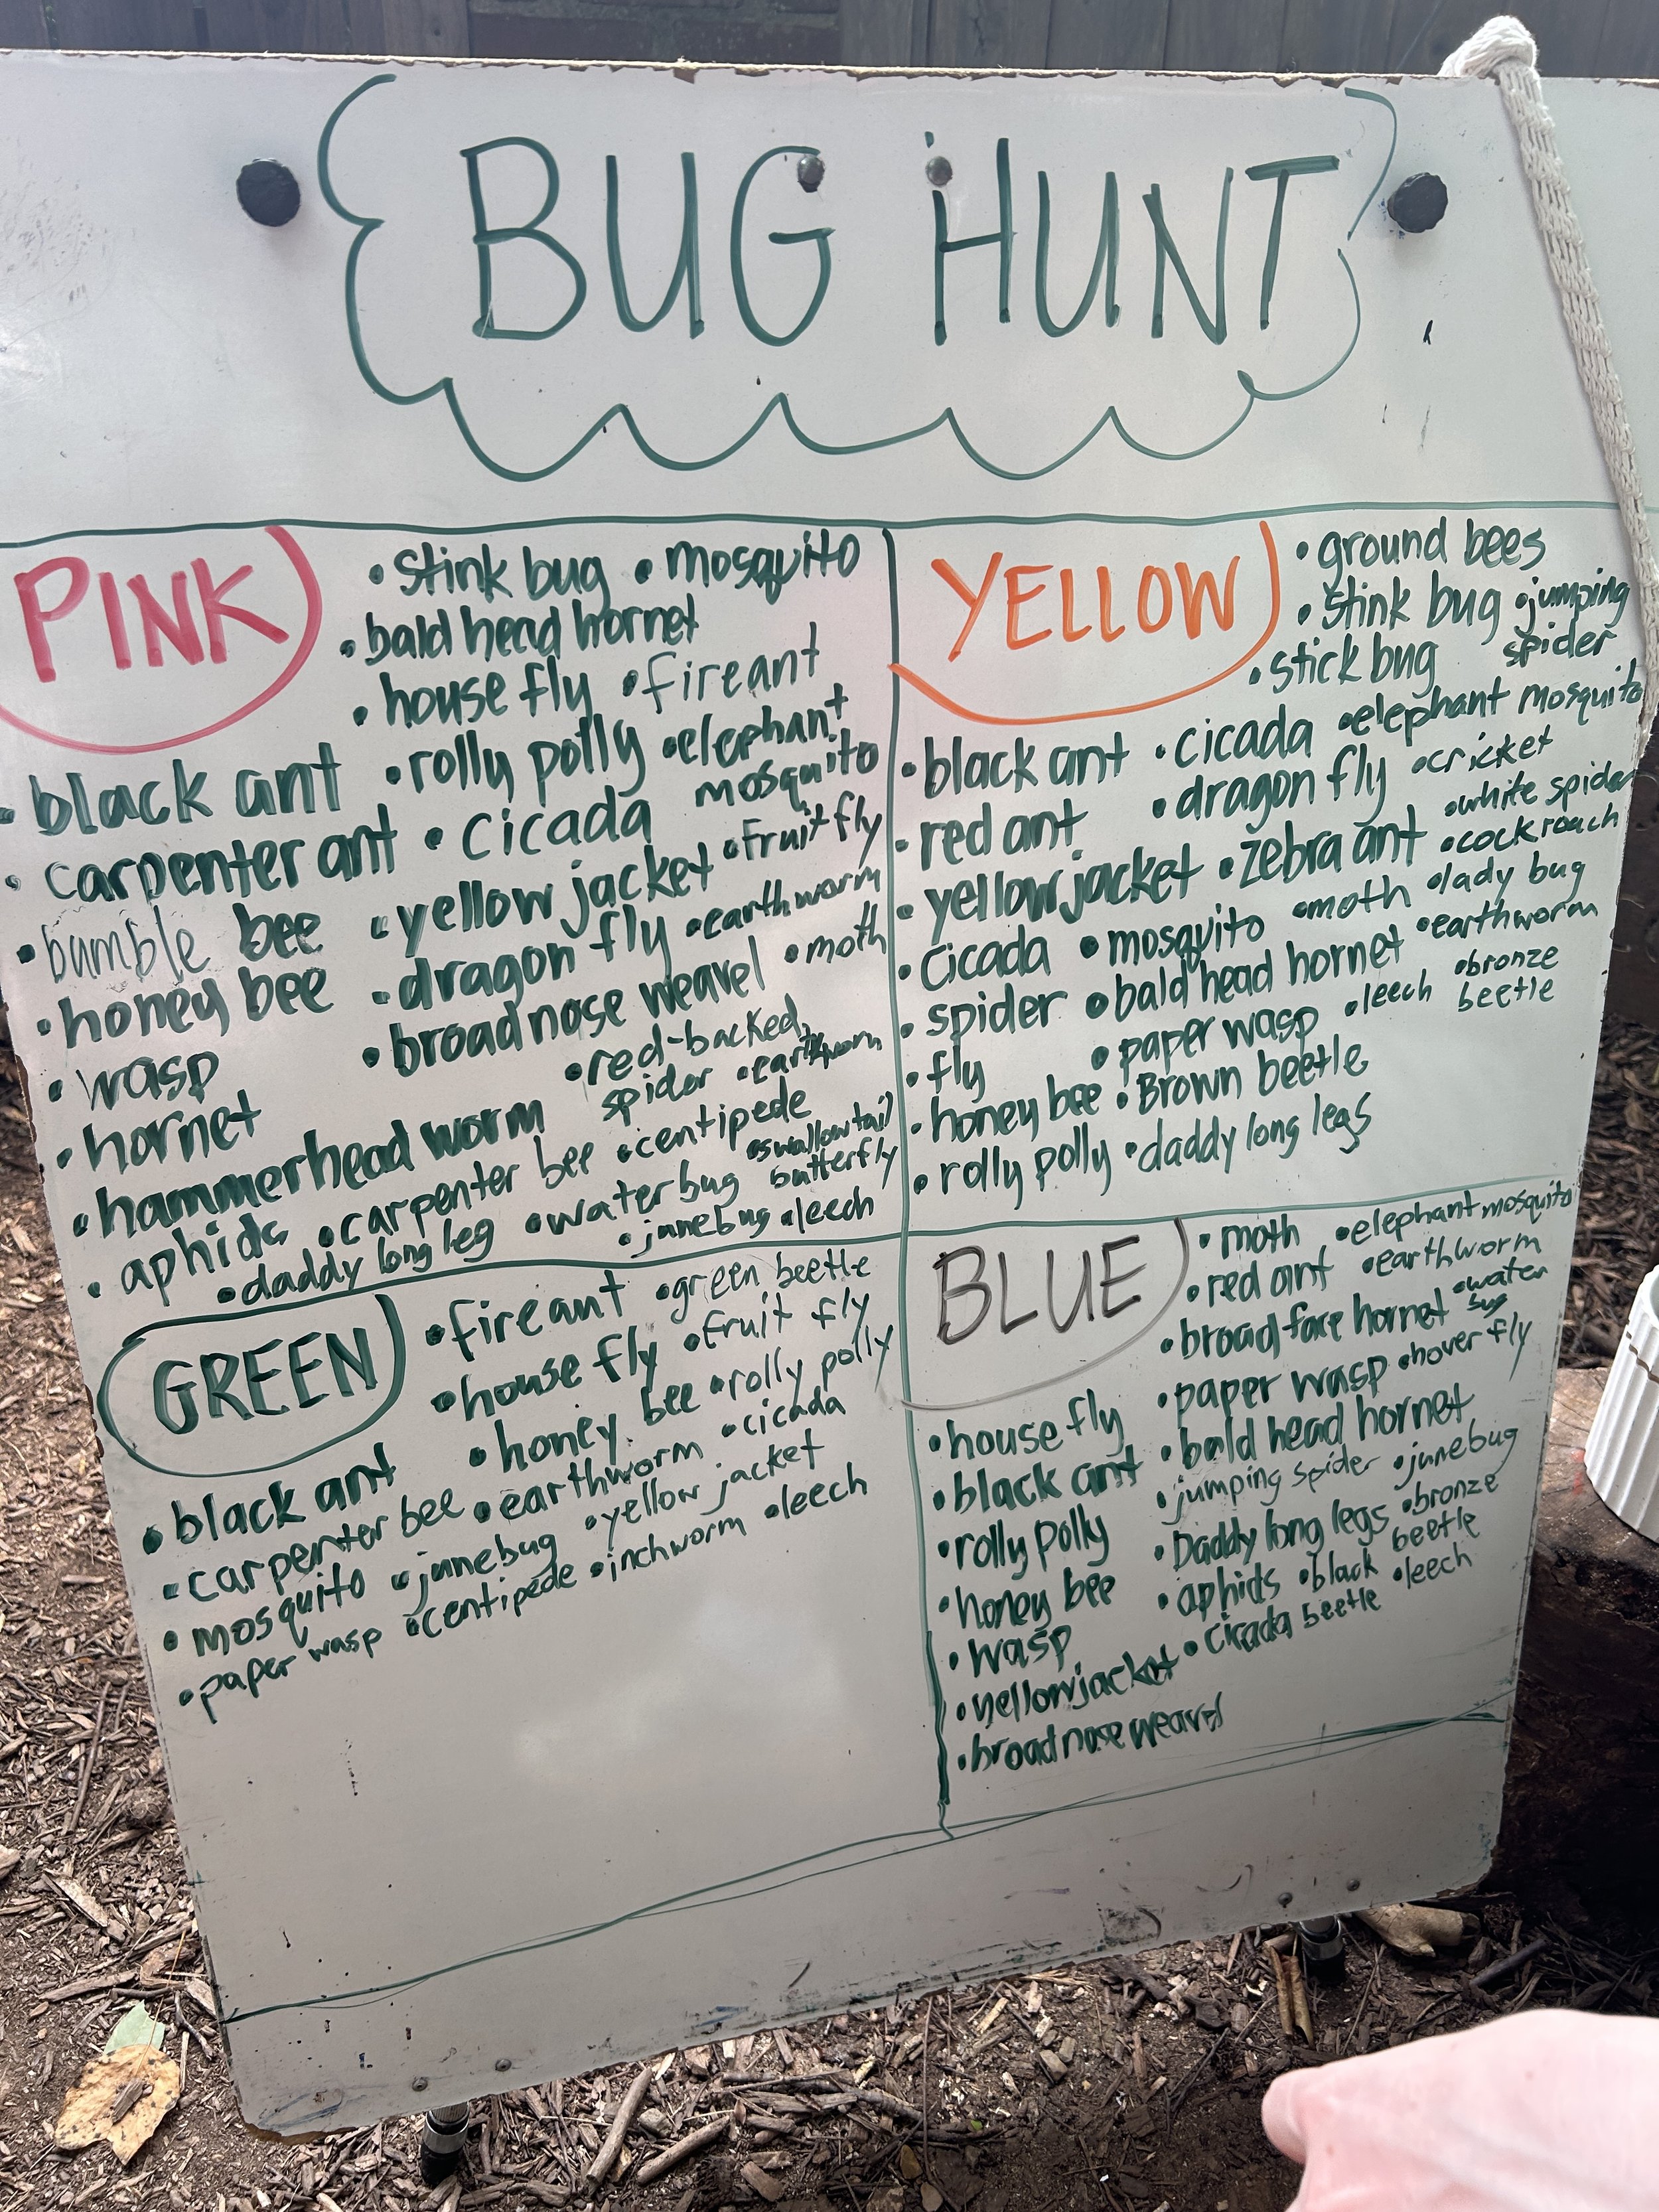 BUG HUNT
PINK
• stink bug • mosquito
• bald head hornet
• house fly • fire ant
• black ant • rolly polly • elephant mosquito
• carpenter ant • cicada • fruit fly
• bumble bee • yellow jacket • earthworm
• honey bee • dragon fly • moth
• wasp • broad nose weavel
• hornet • red-backed spider • earthworm
• hammerhead worm • centipede
• aphids • carpenter bee • waterbug • swallowtail butterfly
• daddy long leg • junebug • leech
YELLOW
• ground bees
• stink bug • jumping spider
• stick bug
• black ant • cicada • elephant mosquito
• red ant • dragon fly • cricket
• yellow jacket • zebra ant • white spider
• cockroach
• cicada • mosquito • moth • lady bug
• spider • bald head hornet • earthworm
• fly • paper wasp • leech • bronze beetle
• honey bee • Brown beetle
• rolly polly • daddy long legs
GREEN
• fire ant • green beetle
• house fly • fruit fly
• honey bee • rolly polly
• black ant • earthworm • cicada
• carpenter bee • yellow jacket
• mosquito • junebug • leech
• paper wasp • centipede • inchworm
BLUE
• moth • elephant mosquito
• red ant • earthworm
• broad face hornet • water bug
• paper wasp • hover fly
• house fly • bald head hornet
• black ant • jumping spider • junebug
• rolly polly • Daddy long legs • bronze beetle
• honey bee • aphids • black beetle • leech
• wasp • cicada
• yellow jacket
• broad nose weavel